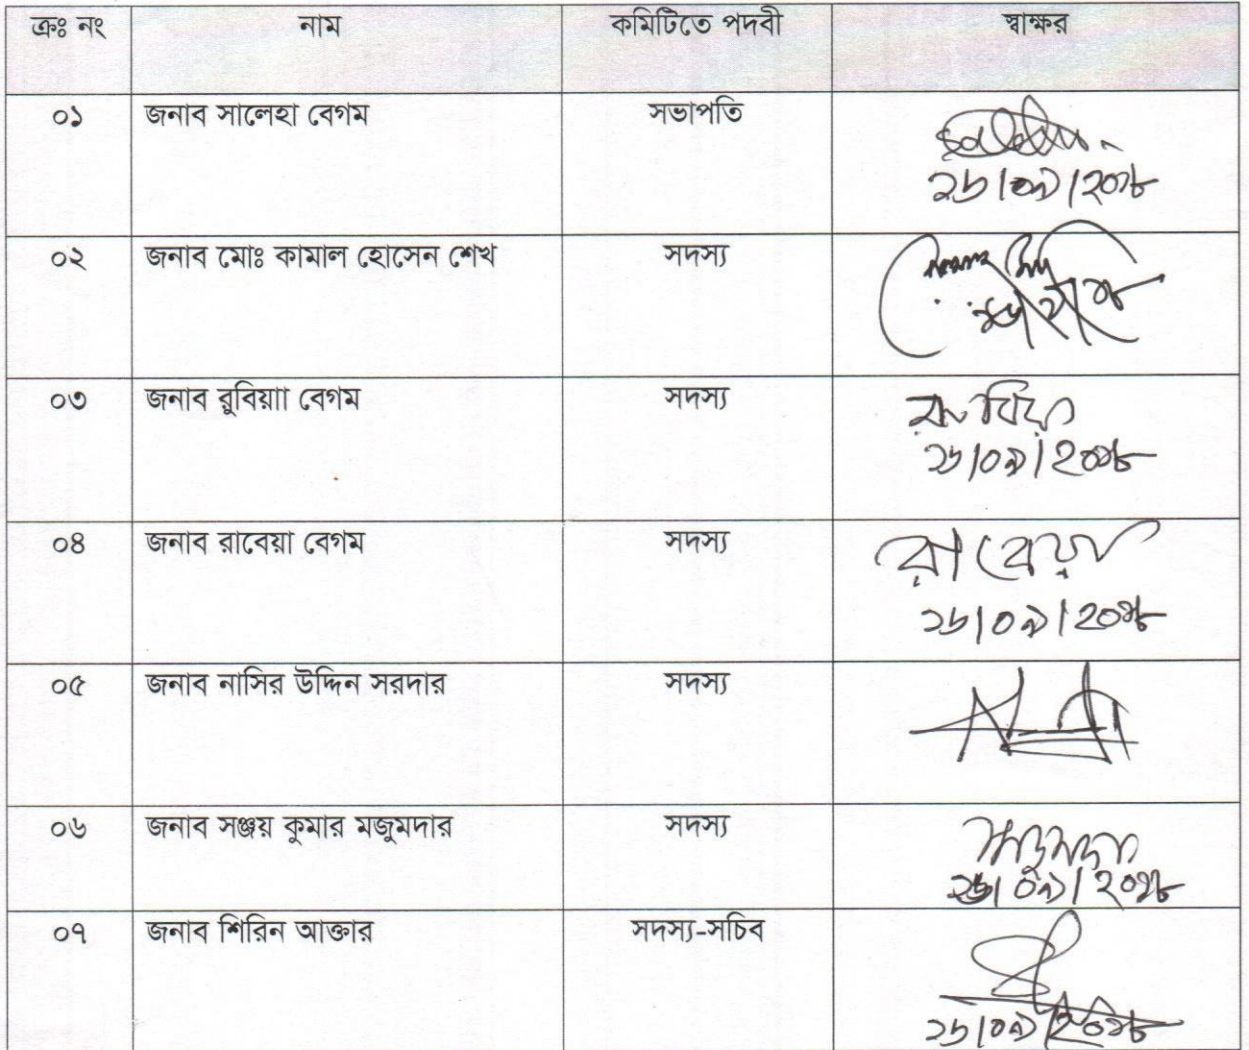 ক্রঃ নং নাম কমিটিতে পদবী স্বাক্ষর
০১ জনাব সালেহা বেগম সভাপতি
২৬/০৯/২০১৮
০২ জনাব মোঃ কামাল হোসেন শেখ সদস্য
০৩ জনাব রুবিয়াা বেগম সদস্য রুবিয়া
২৬/০৯/২০১৮
০৪ জনাব রাবেয়া বেগম সদস্য রাবেয়া
২৬/০৯/২০১৮
০৫ জনাব নাসির উদ্দিন সরদার সদস্য
০৬ জনাব সঞ্জয় কুমার মজুমদার সদস্য
২৬/০৯/২০১৮
০৭ জনাব শিরিন আক্তার সদস্য-সচিব
২৬/০৯/২০১৮